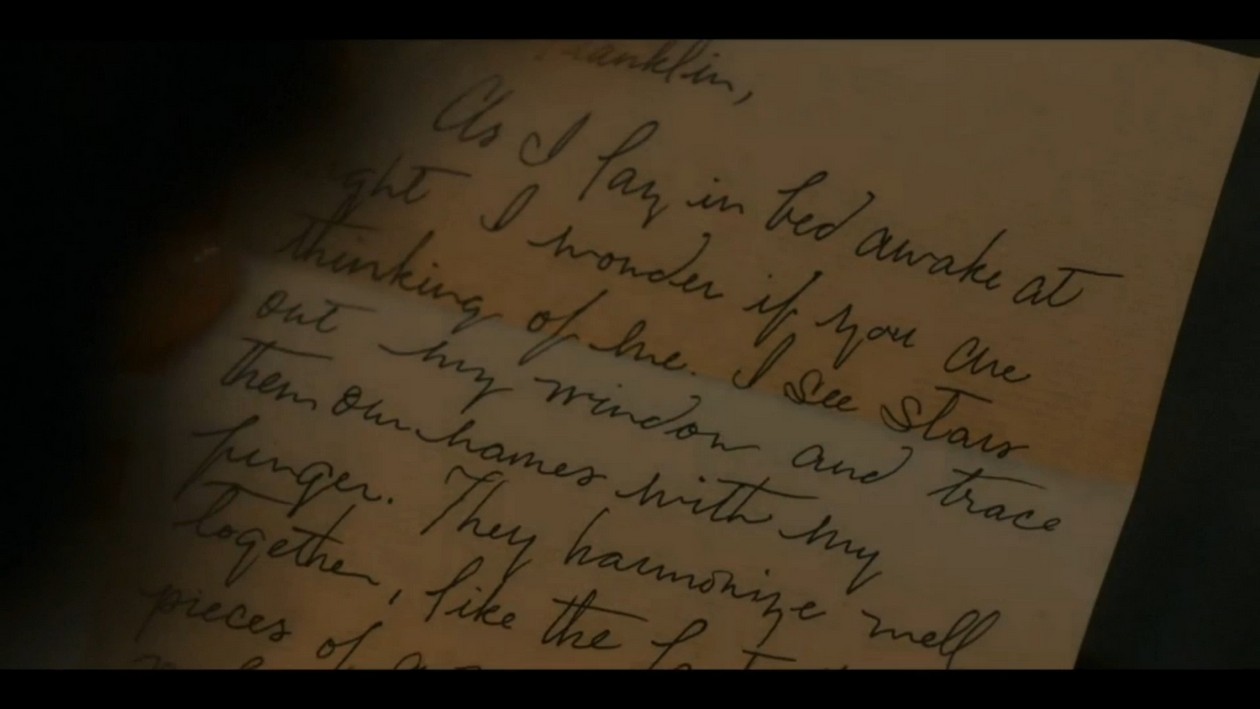 Franklin,
As I lay in bed awake at
ght I wonder if you are
thinking of me. I see stars
out my window and trace
them our names with my
finger. They harmonize well
together, like the
pieces of